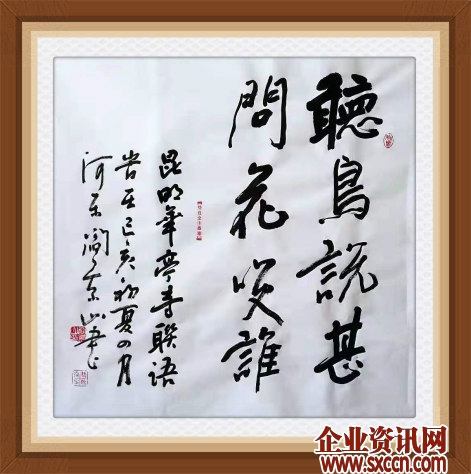 聽鳥說甚
問花笑誰
昆明華亭寺联语
岁在己亥初夏四月
河东阎东山书
企业资讯网
www.sxccn.com